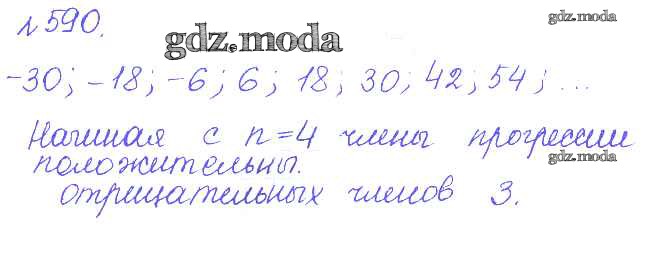 №590.
gdz.moda
gdz.moda
-30; -18; -6; 6; 18; 30; 42; 54; ...
Начиная с n=4 члены прогрессии
положительны.
gdz.moda
отрицательных членов 3.